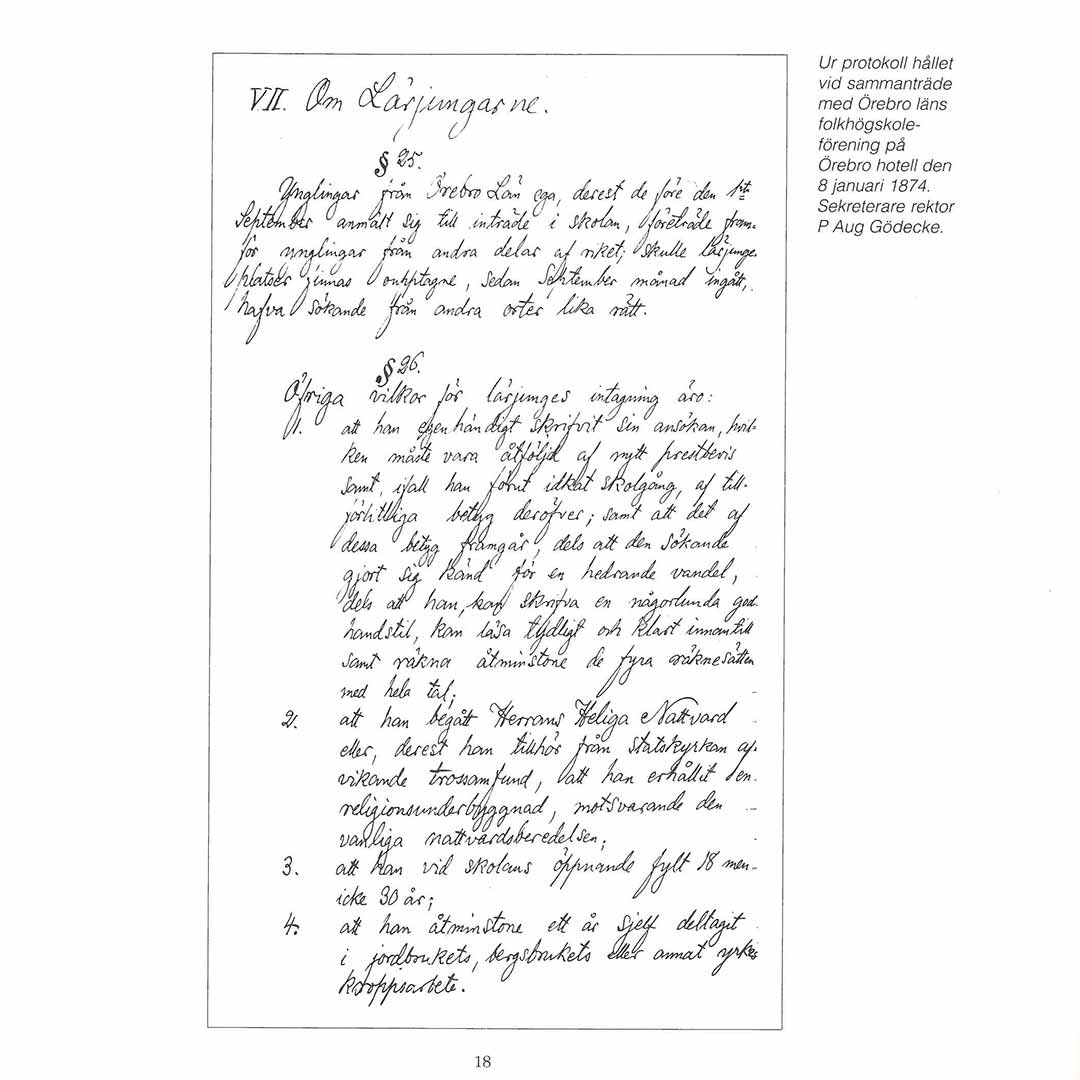 VII. Om Lärjungarne.
§ 25.
Ynglingar från Örebro Län ega, derest de före den 1st
September anmält sig till inträde i skolan, företräde fram-
för ynglingar från andra delar af riket; skulle lärjunge-
platser finnas oupptagne, sedan September månad ingått,
hafva sökande från andra orter lika rätt.
§ 26.
Öfriga vilkor för lärjunges intagning äro:
1. att han egenhändigt skrifvit sin ansökan, hvil-
ken måste vara åtföljd af nytt prestbevis
samt, ifall han förut idkat skolgång, af till-
förlitliga betyg deröfver; samt att det af
dessa betyg framgår, dels att den sökande
gjort sig känd för en hedrande vandel,
dels att han, kan skrifva en någorlunda god
handstil, kan läsa tydligt och klart innantill
samt räkna åtminstone de fyra räknesätten
med hela tal;
2. att han begått Herrans Heliga Nattvard
eller, derest han tillhör från statskyrkan af-
vikande trossamfund, att han erhållit en
religionsunderbyggnad, motsvarande den
vanliga nattvardsberedelsen;
3. att han vid skolans öppnande fylt 18 men
icke 30 år;
4. att han åtminstone ett år sjelf deltagit
i jordbrukets, bergsbrukets eller annat yrkes
kroppsarbete.
Ur protokoll hållet
vid sammanträde
med Örebro läns
folkhögskole-
förening på
Örebro hotell den
8 januari 1874.
Sekreterare rektor
P Aug Gödecke.
18